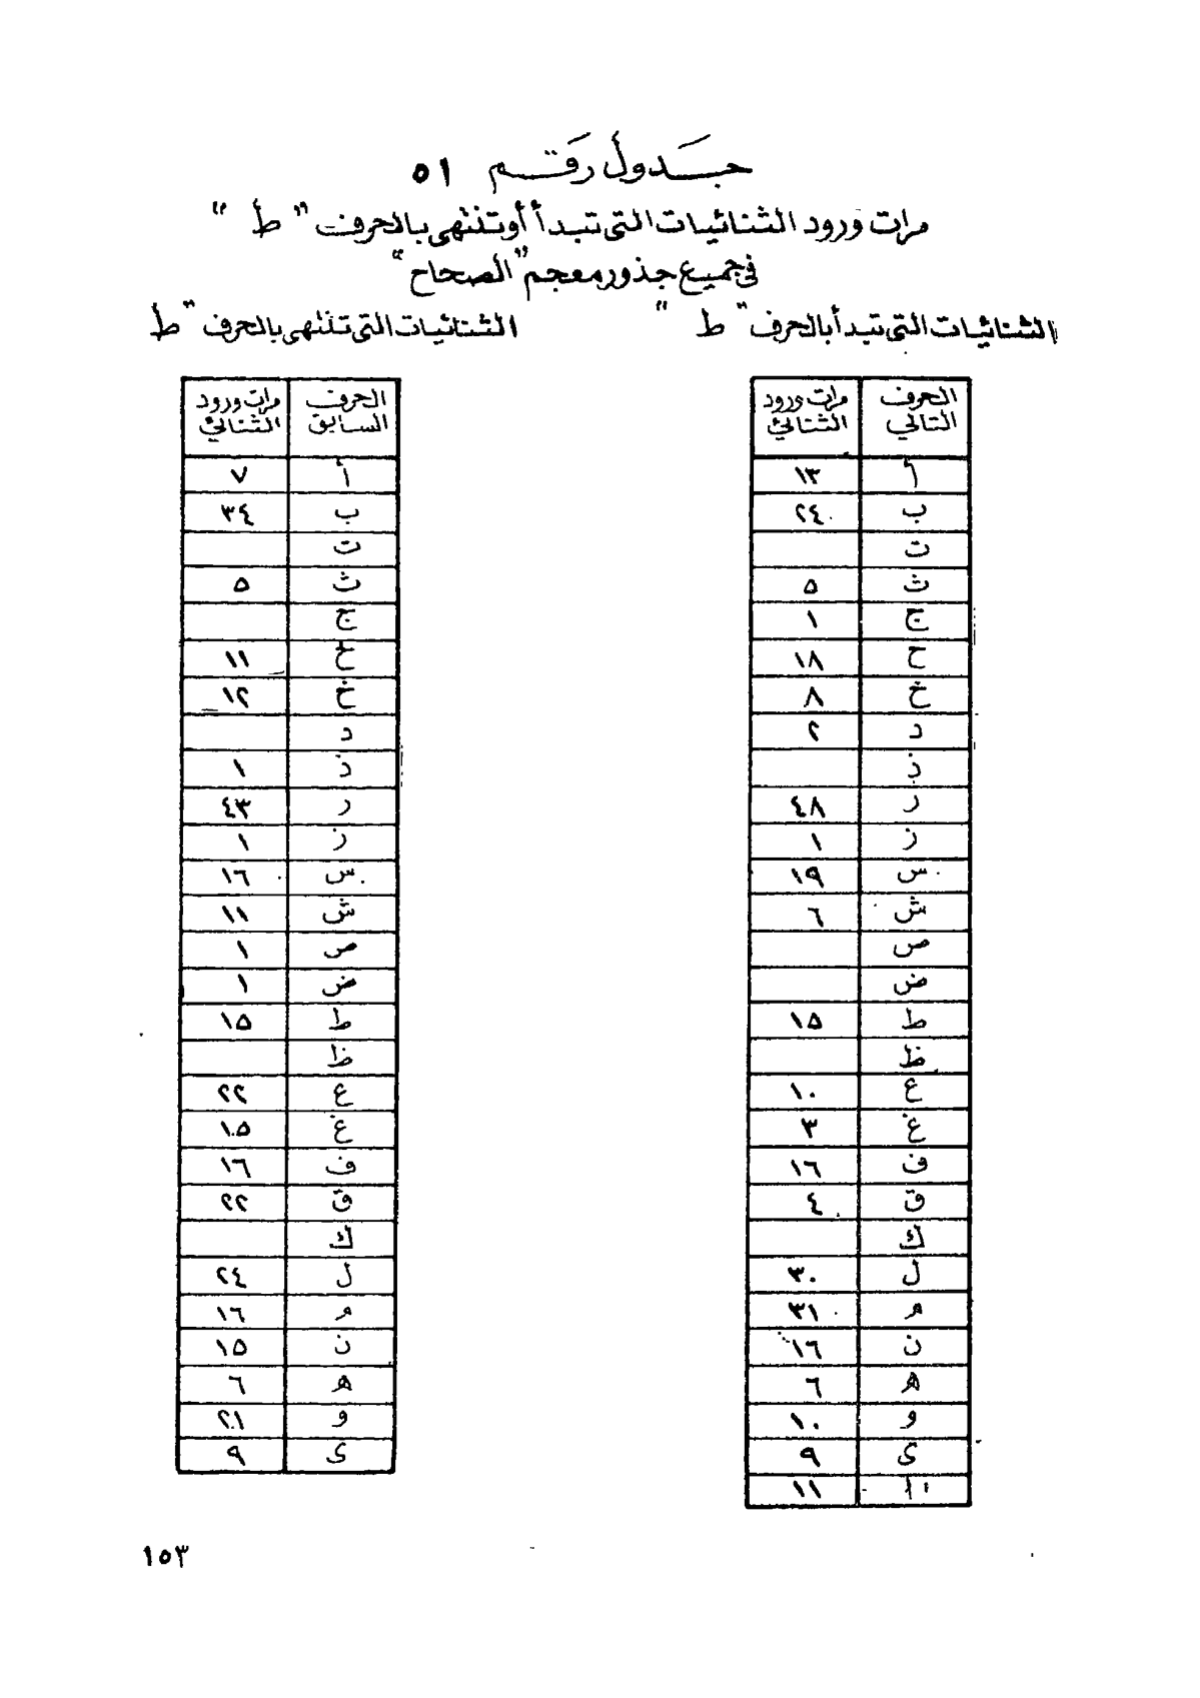 جدول رقم ٥١
مرات ورود الثنائيات التى تبدأ أو تنتهى بالحرف " ط "
فى جميع جذور معجم "الصحاح"
الثنائيات التى تبدأ بالحرف " ط "
الحرف التالي	مرات ورود الثنائي
أ	١٣
ب	٢٤
ت
ث	٥
ج	١
ح	١٨
خ	٨
د	٢
ذ
ر	٤٨
ز	١
س	١٩
ش	٦
ص
ض
ط	١٥
ظ
ع	١٠
غ	٣
ف	١٦
ق	٤
ك
ل	٣٠
م	٣١
ن	١٦
ه	٦
و	١٠
ى	٩
"ا"	١١
الثنائيات التى تنتهى بالحرف " ط
الحرف السابق	مرات ورود الثنائي
أ	٧
ب	٣٤
ت
ث	٥
ج
ح	١١
خ	١٢
د
ذ	١
ر	٤٣
ز	١
س	١٦
ش	١١
ص	١
ض	١
ط	١٥
ظ
ع	٢٢
غ	١٥
ف	١٦
ق	٢٢
ك
ل	٢٤
م	١٦
ن	١٥
ه	٦
و	٢١
ى	٩
١٥٣